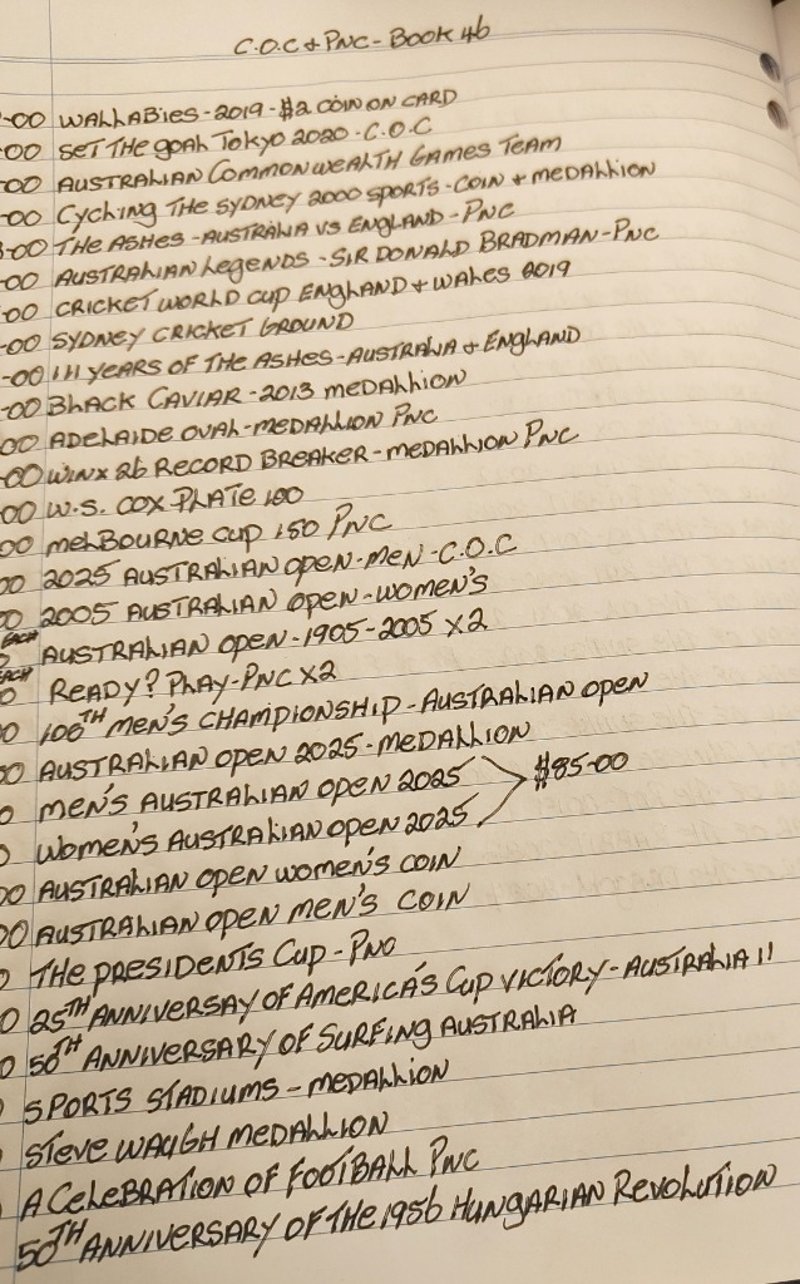 C.O.C & PNC - BOOK 46
-00 WALLABIES - 2019 - $2 COIN ON CARD
00 SET THE GOAL TOKYO 2020 - C.O.C
00 AUSTRALIAN COMMONWEALTH GAMES TEAM
-00 CYCLING THE SYDNEY 2000 SPORTS - COIN & MEDALLION
-00 THE ASHES - AUSTRALIA VS ENGLAND - PNC
-00 AUSTRALIAN LEGENDS - SIR DONALD BRADMAN - PNC
00 CRICKET WORLD CUP ENGLAND & WALES 2019
-00 SYDNEY CRICKET GROUND
-00 111 YEARS OF THE ASHES - AUSTRALIA & ENGLAND
-00 BLACK CAVIAR - 2013 MEDALLION
00 ADELAIDE OVAL - MEDALLION PNC
-00 WINX 26 RECORD BREAKER - MEDALLION PNC
00 W.S. COX PLATE 100
00 MELBOURNE CUP 150 PNC
00 2025 AUSTRALIAN OPEN - MEN - C.O.C
0 2005 AUSTRALIAN OPEN - WOMEN'S
EACH AUSTRALIAN OPEN - 1905 - 2005 X2
EACH
0 READY? PLAY - PNC X2
0 100TH MEN'S CHAMPIONSHIP - AUSTRALIAN OPEN
00 AUSTRALIAN OPEN 2025 - MEDALLION
0 MEN'S AUSTRALIAN OPEN 2025 $85-00
0 WOMEN'S AUSTRALIAN OPEN 2025
00 AUSTRALIAN OPEN WOMEN'S COIN
00 AUSTRALIAN OPEN MEN'S COIN
0 THE PRESIDENTS CUP - PNC
0 25TH ANNIVERSAY OF AMERICA'S CUP VICTORY - AUSTRALIA II
0 50TH ANNIVERSARY OF SURFING AUSTRALIA
SPORTS STADIUMS - MEDALLION
STEVE WAUGH MEDALLION
A CELEBRATION OF FOOTBALL PNC
50TH ANNIVERSARY OF THE 1956 HUNGARIAN REVOLUTION